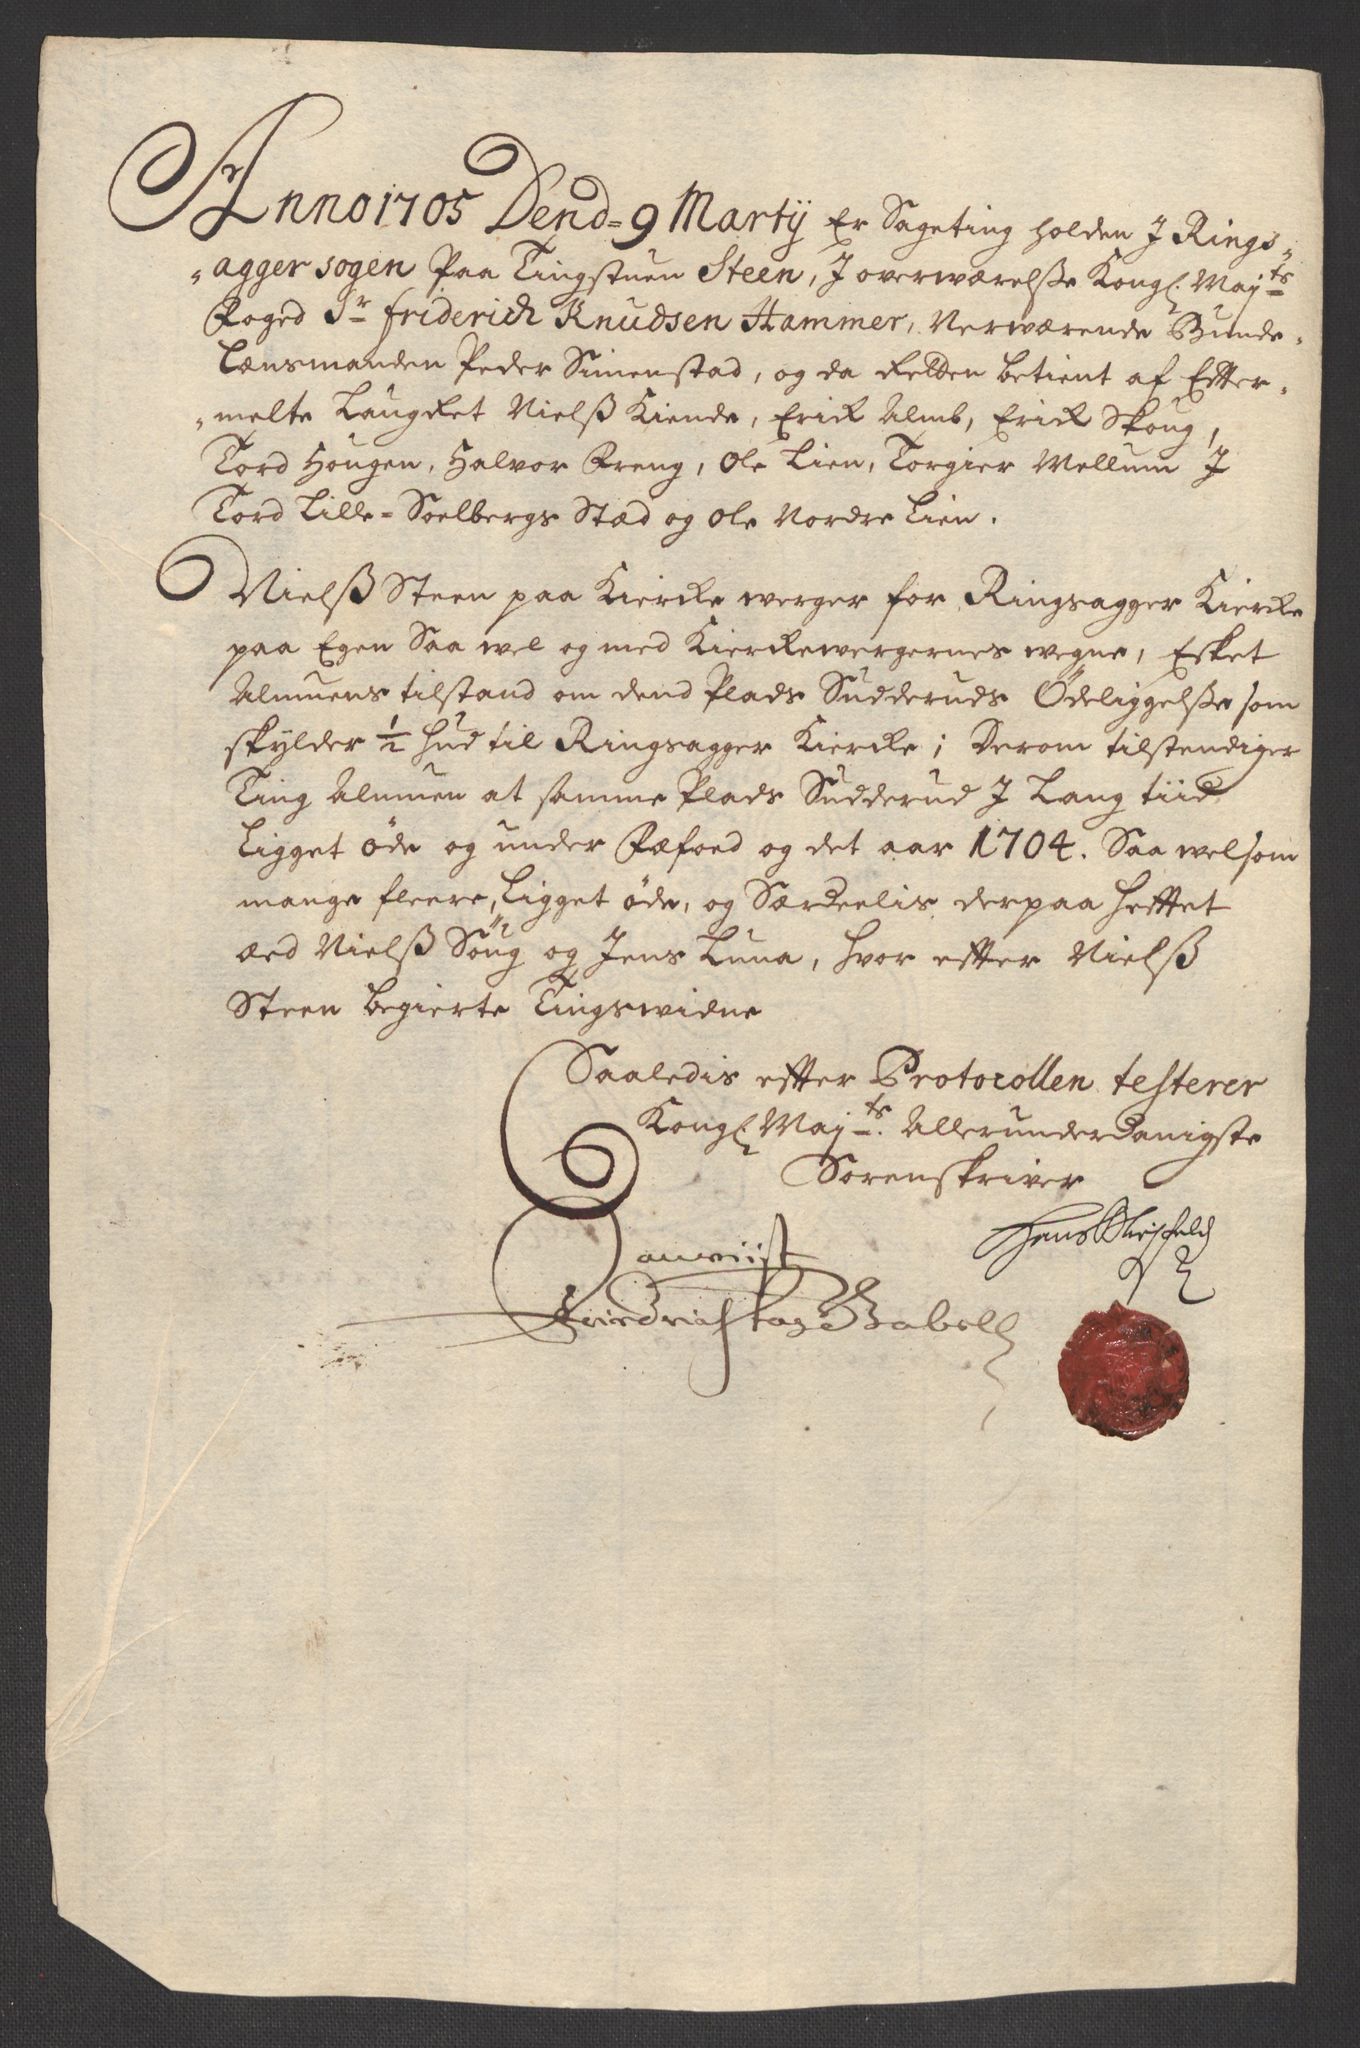 Anno 1705 Dend=9 Martij Er Sageting holden J Rings-
-agger sogen Paa Tingstuen Steen, J overwærelße Kongl: Maj:ts
Foged Sr friderich Knudsen Hammer, Nerwærende Bunde-
Lænsmanden Peder Simenstad, og da Retten betient af Efter-
-melte Laugret Nielß Kiende, Erick Almb, Erick Skoug,
Tord Hougen, Halvor Freng, Ole Lien, Torgier Mellum J
Tord Lille=Soelbergs Stæd og Ole Nordre Lien.
Nielß Steen paa Kiercke werger for Ringsagger Kiercke
paa Egen Saa wel og med Kierckewergernes wegne, Esket
Almuens tilstand om dend Plads Sudderuds Ödeliggelße som
skylder 1/2 hud til Ringsagger Kiercke; Derom tilstendiger
Ting Almuen at samme Plads Sudderud J Lang tiid
Ligget öde og under Fæfoed og det aar 1704. Saa welsom
mange fleere, Ligget öde, og Særdeelis derpaa heftet
æd Nielß Soug og Jens Luna, hvor efter Nielß
Steen begierte Tingswidne
Saaledis efter Protocollen testerer
Kongl: Maj:ts Allerunderdanigste
Sorenskriver
Hens